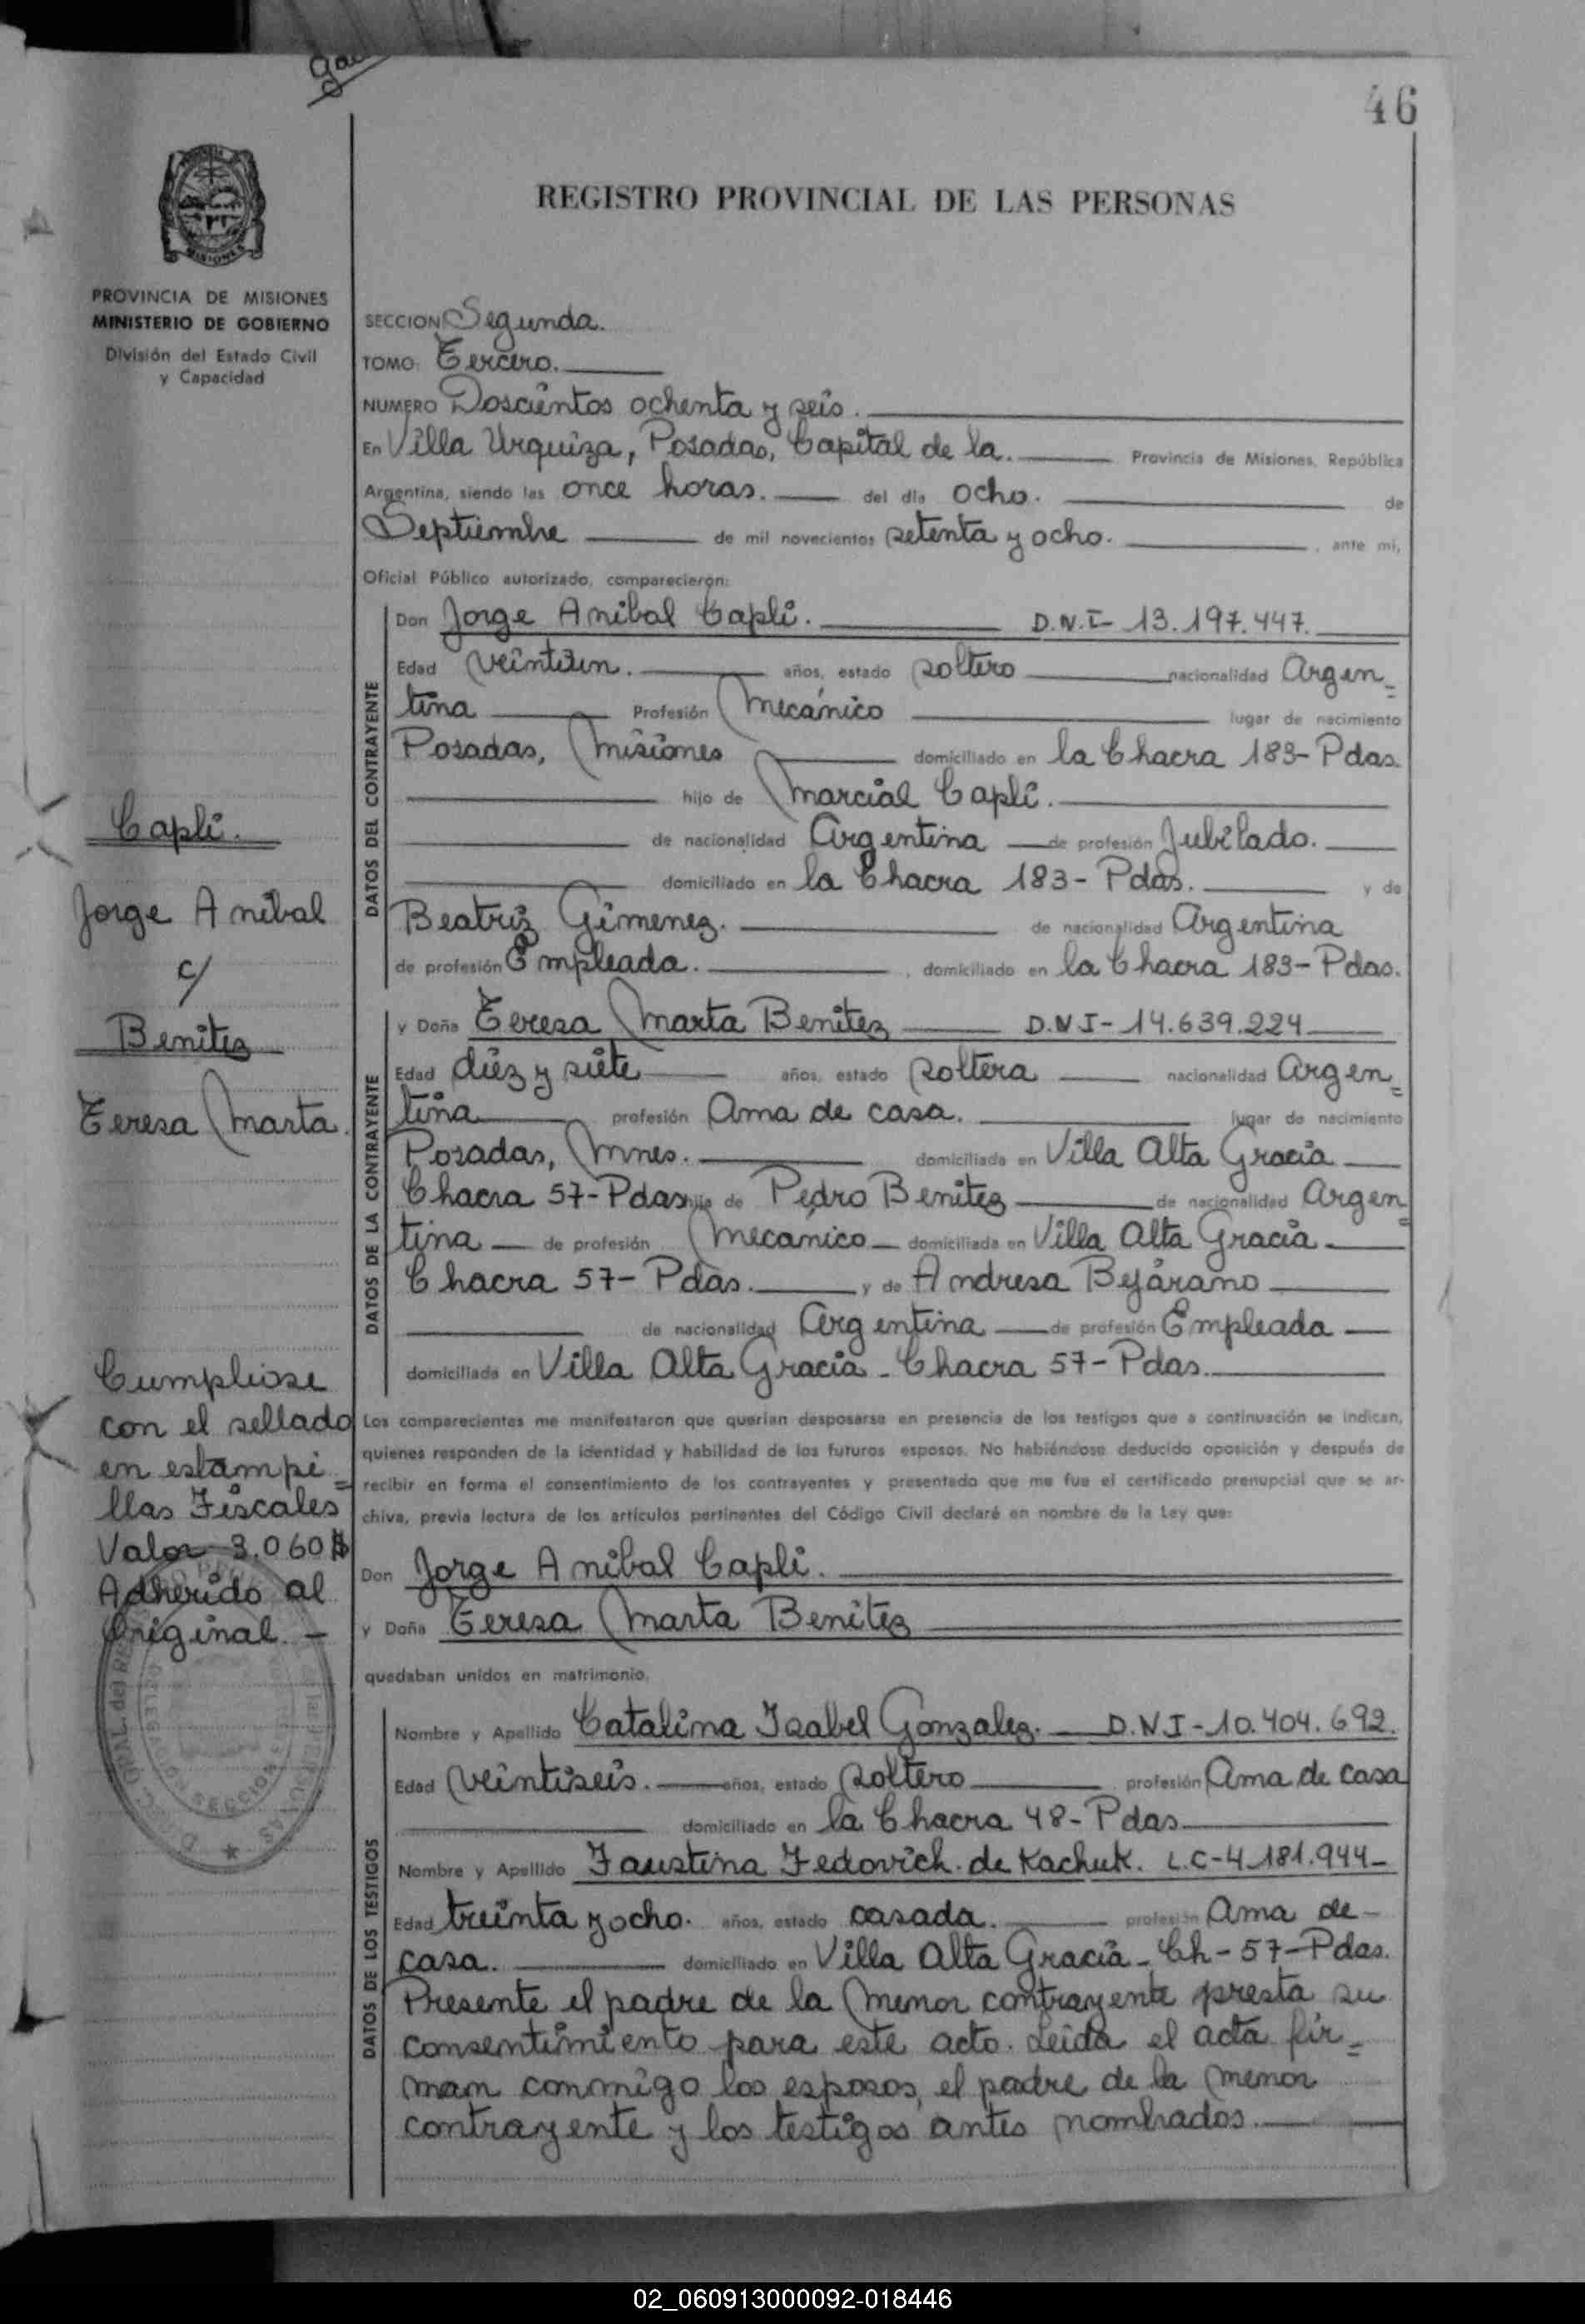 46
REGISTRO PROVINCIAL DE LAS PERSONAS
MISIONES
PROVINCIA DE MISIONES
MINISTERIO DE GOBIERNO
División del Estado Civil
y Capacidad
SECCION Segunda.
TOMO: Tercero.
NUMERO Doscientos ochenta y seis.
En Villa Urquiza, Posadas, Capital de la. Provincia de Misiones, República
Argentina, siendo las once horas. del día ocho. de
Septiembre de mil novecientos setenta y ocho. , ante mi,
Oficial Público autorizado, comparecieron:
DATOS DEL CONTRAYENTE
Don Jorge Anibal Capli. D.N.I- 13.197.447.
Edad veintiun. años, estado soltero nacionalidad Argen=
tina Profesión Mecánico lugar de nacimiento
Posadas, Misiones domiciliado en la Chacra 183- Pdas.
hijo de Marcial Capli.
de nacionalidad Argentina de profesión Jubilado.
domiciliado en la Chacra 183- Pdas. y de
Beatriz Gimenez. de nacionalidad Argentina
de profesión Empleada. , domiciliado en la Chacra 183- Pdas.
DATOS DE LA CONTRAYENTE
y Doña Teresa Marta Benitez D.N I- 14.639.224
Edad diez y siete años, estado soltera nacionalidad Argen=
tina profesión Ama de casa. lugar de nacimiento
Posadas, Mnes. domiciliada en Villa Alta Gracia
Chacra 57- Pdas hija de Pedro Benitez de nacionalidad Argen=
tina de profesión Mecanico domiciliada en Villa Alta Gracia
Chacra 57- Pdas. y de Andresa Bejarano
de nacionalidad Argentina de profesión Empleada
domiciliada en Villa Alta Gracia - Chacra 57- Pdas.
Los comparecientes me manifestaron que querían desposarse en presencia de los testigos que a continuación se indican,
quienes responden de la identidad y habilidad de los futuros esposos. No habiéndose deducido oposición y después de
recibir en forma el consentimiento de los contrayentes y presentado que me fue el certificado prenupcial que se ar-
chiva, previa lectura de los artículos pertinentes del Código Civil declaré en nombre de la Ley que:
Don Jorge Anibal Capli.
y Doña Teresa Marta Benitez
quedaban unidos en matrimonio.
DATOS DE LOS TESTIGOS
Nombre y Apellido Catalina Isabel Gonzalez. D.N.I-10.404.692.
Edad veintiseis. años, estado soltero profesión Ama de casa
domiciliado en la Chacra 48- Pdas
Nombre y Apellido Faustina Fedovich. de Kachuk. L.C-4.181.944-
Edad treinta y ocho. años, estado casada. profesión Ama de-
casa. domiciliado en Villa Alta Gracia - Ch- 57-Pdas.
Presente el padre de la menor contrayente presta su
consentimiento para este acto. Leida el acta fir=
man conmigo los esposos, el padre de la menor
contrayente y los testigos antes nombrados.
Capli.
Jorge Anibal
c/
Benitez
Teresa Marta.
Cumpliose
con el sellado
en estampi=
llas Fiscales
Valor 3.060$
Adherido al
Original. -
02_060913000092-018446